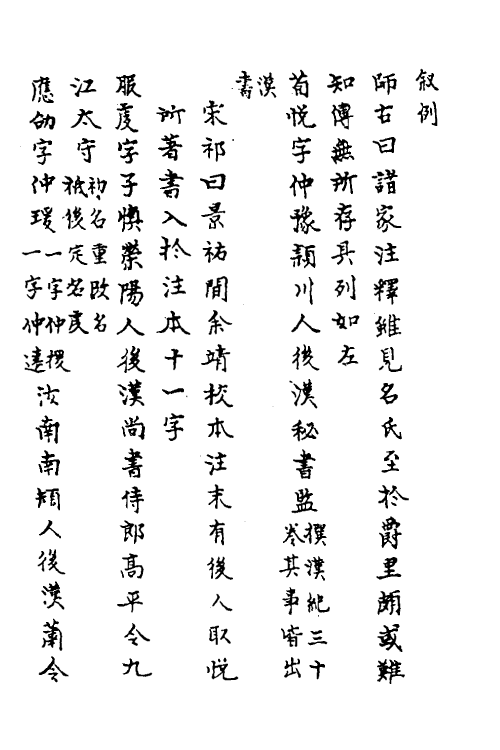 敘例
師古曰諸家注釋雖見名氏至於爵里頗或難
知傳無所存具列如左
荀悅字仲豫潁川人後漢秘書監撰漢紀三十
卷其事皆出
漢
書
宋祁曰景祐間余靖校本注末有後人取悅
所著書入於注本十一字
服虔字子慎滎陽人後漢尚書侍郎高平令九
江太守初名重改名
祇後定名虔
應劭字仲瑗一字仲援
一字仲遠汝南南頓人後漢蕭令